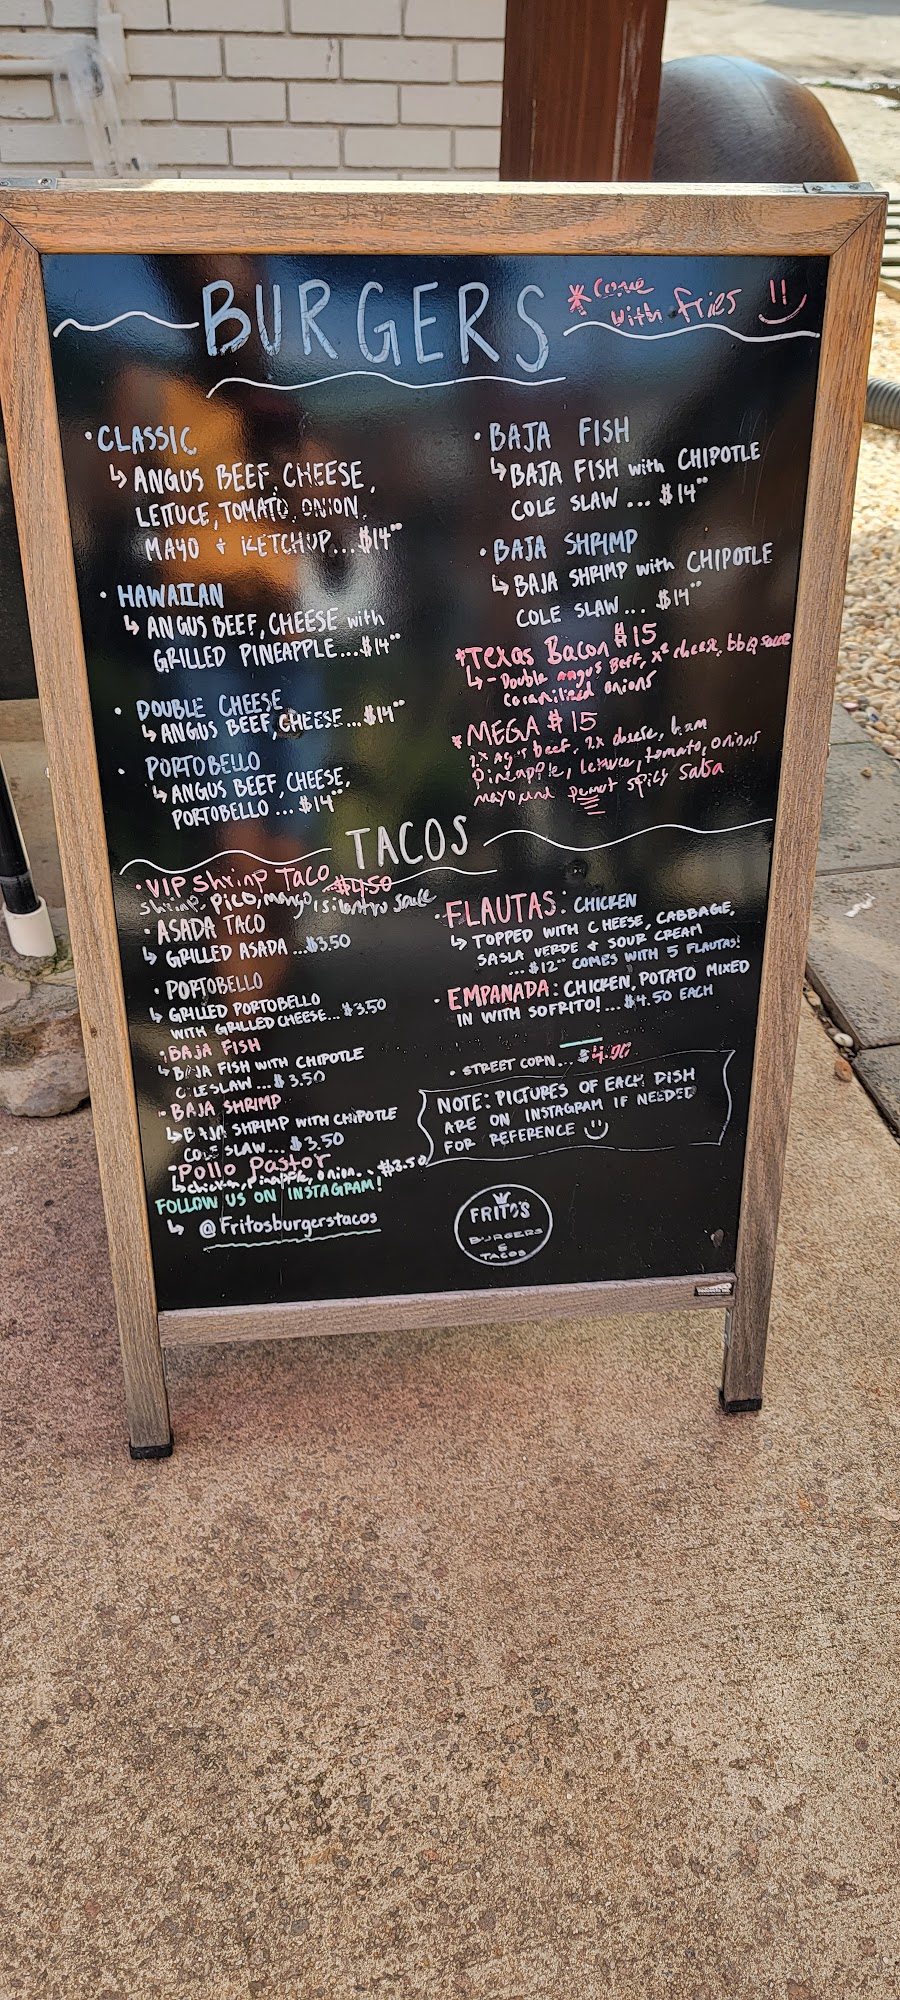 BURGERS
*Come
with fries
• CLASSIC
↳ ANGUS BEEF, CHEESE,
LETTUCE, TOMATO, ONION,
MAYO & KETCHUP...$14⁰⁰
• HAWAIIAN
↳ ANGUS BEEF, CHEESE with
GRILLED PINEAPPLE....$14⁰⁰
• DOUBLE CHEESE
↳ ANGUS BEEF, CHEESE...$14⁰⁰
• PORTOBELLO
↳ ANGUS BEEF, CHEESE,
PORTOBELLO ...$14⁰⁰
• BAJA FISH
↳ BAJA FISH with CHIPOTLE
COLE SLAW ... $14⁰⁰
• BAJA SHRIMP
↳ BAJA SHRIMP with CHIPOTLE
COLE SLAW ... $14⁰⁰
*Texas Bacon $15
↳ - Double angus Beff, x² cheese, bbq sauce
Caramilized onions
*MEGA $15
2x beef, 2x cheese, ham
pineapple, lettuce, tomato, onions
mayo and penut spicy Salsa
TACOS
• VIP Shrimp Taco $4.50
shrimp, pico, mango, silantro sauce
• ASADA TACO
↳ GRILLED ASADA ...$3.50
• PORTOBELLO
↳ GRILLED PORTOBELLO
WITH GRILLED CHEESE... $3.50
• BAJA FISH
↳ BAJA FISH WITH CHIPOTLE
COLESLAW ...$3.50
• BAJA SHRIMP
↳ BAJA SHRIMP WITH CHIPOTLE
COLE SLAW... $3.50
-Pollo Pastor
↳ chicken, pinapple, onion.. $3.50
FOLLOW US ON INSTAGRAM!
↳ @Fritosburgerstacos
• FLAUTAS: CHICKEN
↳ TOPPED WITH CHEESE, CABBAGE,
SASLA VERDE & SOUR CREAM
...$12⁰⁰ COMES WITH 5 FLAUTAS!
• EMPANADA: CHICKEN, POTATO MIXED
IN WITH SOFRITO! ...$4.50 EACH
• STREET CORN... $4.00
NOTE: PICTURES OF EACH DISH
ARE ON INSTAGRAM IF NEEDED
FOR REFERENCE
FRITO'S
BURGERS
&
TACOS